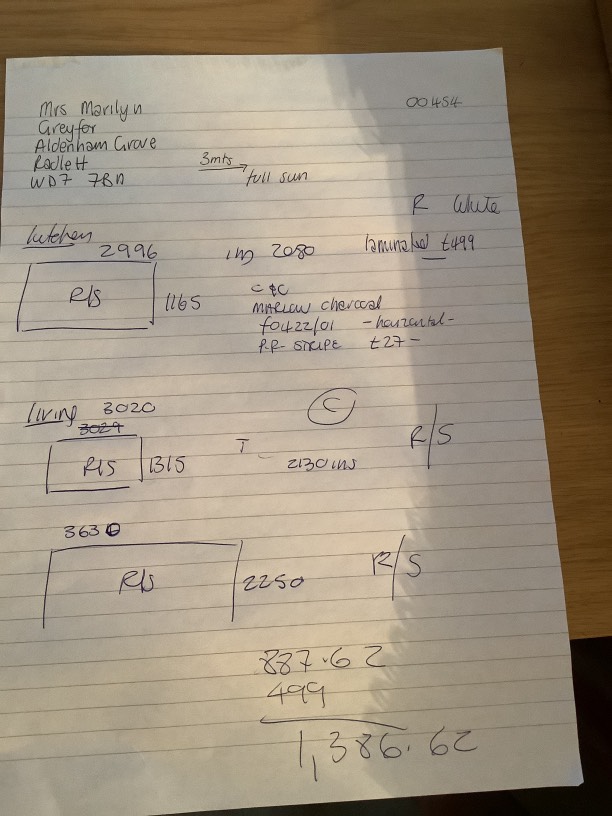 Mrs Marilyn
00454
Greyfor
Aldenham Grove
Radlett
WD7 7BN
3mts
full sun
R White
kitchen
2996
2080
laminated £499
R/S
1165
C&C
MARLOW charcoal
f0422/01 - horizontal -
STRIPE £27-
living 3020
3029
C
R/S
1315
T
2130 ins
R/S
3630
R/S
2250
R/S
887.62
499
1,386.62